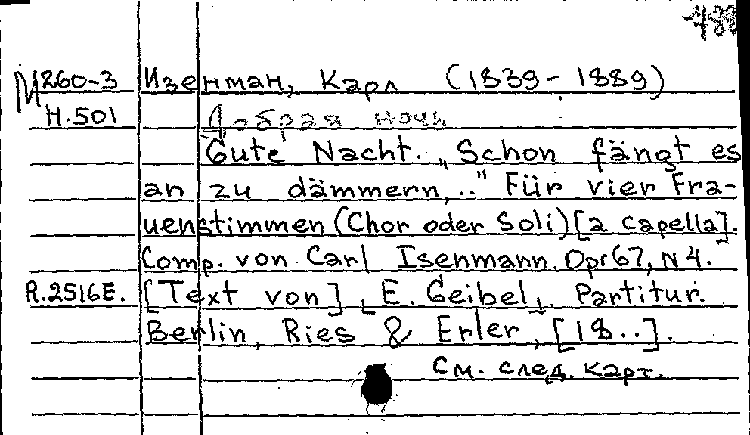 -488
М260-3 Изенман, Карл (1839-1889)
Н.501 Добрая ночь
Gute Nacht. „Schon fängt es
an zu dämmern,.." Für vier Fra-
uenstimmen (Chor oder Soli) [a capella].
Comp. von Carl Isenmann. Op. 67, N 4.
R.2516E. [Text von] E. Geibel. Partitur.
Berlin, Ries & Erler, [18..].
См. след. карт.